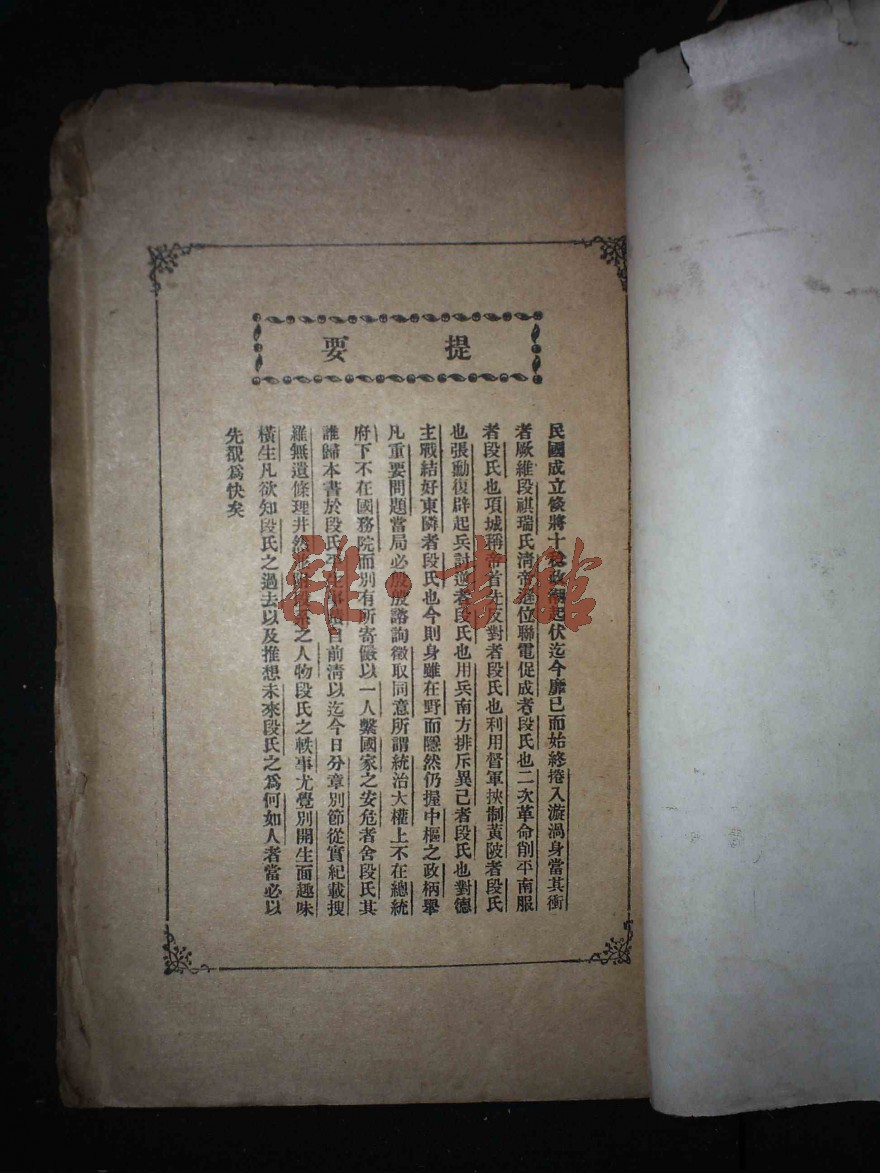 提要
民國成立倐將十稔政潮起伏迄今靡已而始終捲入漩渦身當其衝
者厥維段祺瑞氏清帝遜位聯電促成者段氏也二次革命削平南服
者段氏也項城稱帝首先反對者段氏也利用督軍挾制黃陂者段氏
也張勳復辟起兵討逆者段氏也用兵南方排斥異己者段氏也對德
主戰結好東隣者段氏也今則身雖在野而隱然仍握中樞之政柄舉
凡重要問題當局必殷殷諮詢徵取同意所謂統治大權上不在總統
府下不在國務院而別有所寄儼以一人繫國家之安危者舍段氏其
誰歸本書於段氏平生事蹟自前清以迄今日分章別節從實紀載搜
羅無遺條理井然系之人物段氏之軼事尤覺別開生面趣味
橫生凡欲知段氏之過去以及推想未來段氏之爲何如人者當必以
先覩爲快矣
雜·書館